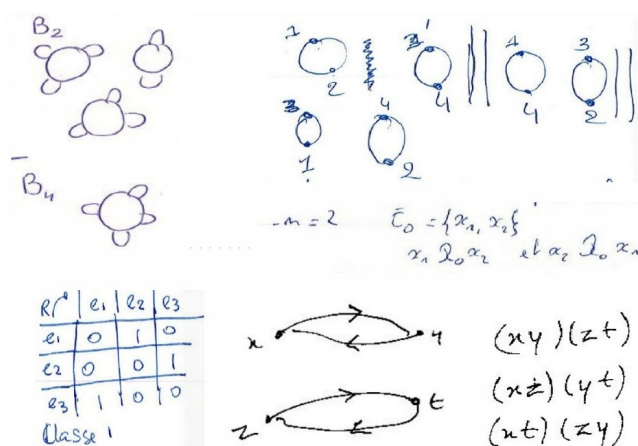 B2
B4
1
2
4
4
4
3
2
1
4
2
n=2
x1 x2 et x2 x1
e1 e2 e3
e1 0 1 0
e2 0 0 1
e3 1 0 0
Classe 1
x y
z t
(xy)(zt)
(xz)(yt)
(xt)(zy)